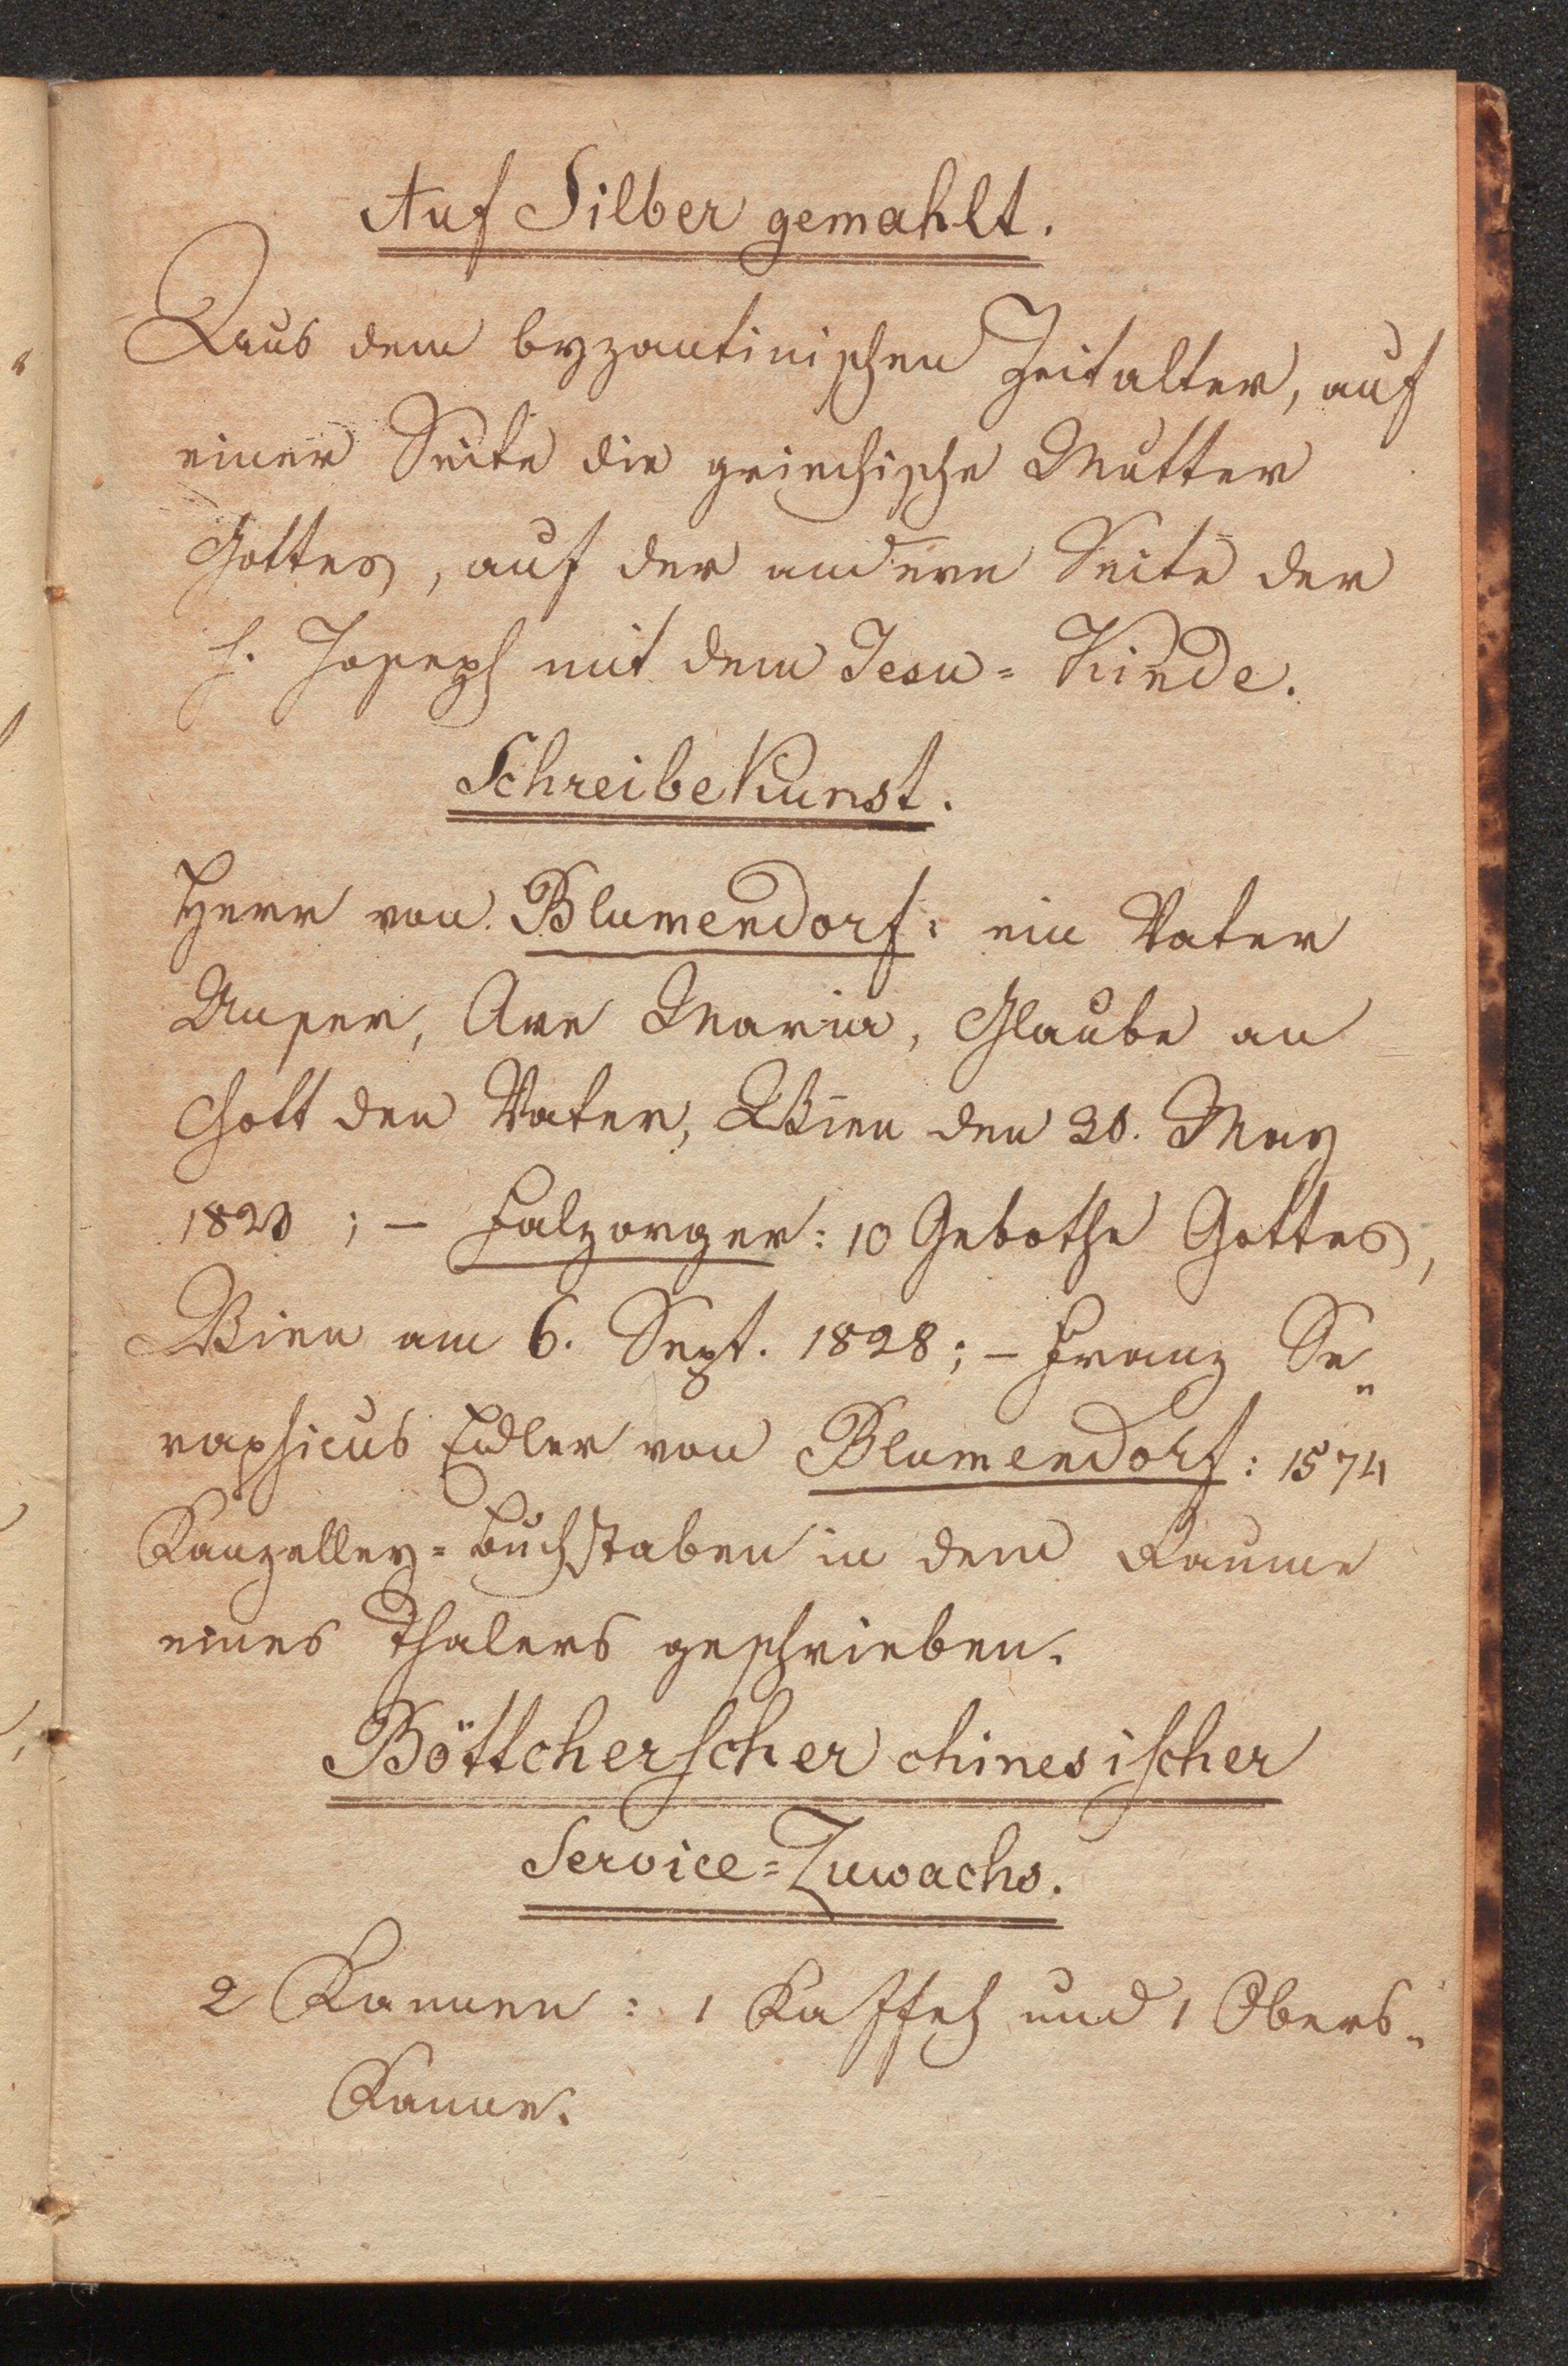 Auf Silber gemahlt.
Aus dem byzantinischen Zeitalter, auf
einer Seite die griechische Mutter
Gottes, auf der andern Seite der
h. Joseph mit dem Jesu=Kinde.
Schreibekunst.
Herr von Blumendorf: ein Vater
Unser, Ave Maria, Glaube an
Gott den Vater, Wien den 28. May
1828; – Falzorger: 10 Gebothe Gottes,
Wien am 6. Sept. 1828; – Franz Se„
raphicus Edler von Blumendorf: 1574
Kanzelley=Buchstaben in dem Raume
eines Thalers geschrieben.
Böttcherscher chinesischer
Service=Zuwachs.
2 Kannen: 1 Kaffeh und 1 Obers„
Kanne.